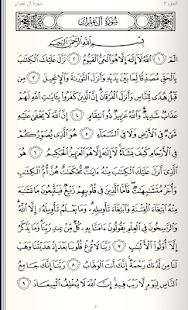 سورة آل عمران الجزء ٣
سُورَةُ آلِ عِمْرَانَ
بِسْمِ اللَّهِ الرَّحْمَٰنِ الرَّحِيمِ
الٓمٓ ١ اللَّهُ لَا إِلَٰهَ إِلَّا هُوَ الْحَيُّ الْقَيُّومُ ٢ نَزَّلَ عَلَيْكَ الْكِتَٰبَ
بِالْحَقِّ مُصَدِّقًا لِّمَا بَيْنَ يَدَيْهِ وَأَنزَلَ التَّوْرَىٰةَ وَالْإِنجِيلَ ٣ مِن
قَبْلُ هُدًى لِّلنَّاسِ وَأَنزَلَ الْفُرْقَانَ إِنَّ الَّذِينَ كَفَرُوا بِـَٔايَٰتِ اللَّهِ لَهُمْ
عَذَابٌ شَدِيدٌ وَاللَّهُ عَزِيزٌ ذُو انتِقَامٍ ٤ إِنَّ اللَّهَ لَا يَخْفَىٰ عَلَيْهِ
شَيْءٌ فِي الْأَرْضِ وَلَا فِي السَّمَاءِ ٥ هُوَ الَّذِي يُصَوِّرُكُمْ
فِي الْأَرْحَامِ كَيْفَ يَشَاءُ لَا إِلَٰهَ إِلَّا هُوَ الْعَزِيزُ الْحَكِيمُ ٦
هُوَ الَّذِي أَنزَلَ عَلَيْكَ الْكِتَٰبَ مِنْهُ ءَايَٰتٌ مُّحْكَمَٰتٌ هُنَّ أُمُّ الْكِتَٰبِ
وَأُخَرُ مُتَشَٰبِهَٰتٌ فَأَمَّا الَّذِينَ فِي قُلُوبِهِمْ زَيْغٌ فَيَتَّبِعُونَ مَا تَشَٰبَهَ
مِنْهُ ابْتِغَاءَ الْفِتْنَةِ وَابْتِغَاءَ تَأْوِيلِهِ وَمَا يَعْلَمُ تَأْوِيلَهُ إِلَّا
اللَّهُ وَالرَّٰسِخُونَ فِي الْعِلْمِ يَقُولُونَ ءَامَنَّا بِهِ كُلٌّ مِّنْ عِندِ رَبِّنَا وَمَا يَذَّكَّرُ
إِلَّا أُولُوا الْأَلْبَٰبِ ٧ رَبَّنَا لَا تُزِغْ قُلُوبَنَا بَعْدَ إِذْ هَدَيْتَنَا وَهَبْ
لَنَا مِن لَّدُنكَ رَحْمَةً إِنَّكَ أَنتَ الْوَهَّابُ ٨ رَبَّنَا إِنَّكَ جَامِعُ
النَّاسِ لِيَوْمٍ لَّا رَيْبَ فِيهِ إِنَّ اللَّهَ لَا يُخْلِفُ الْمِيعَادَ ٩
٥٠